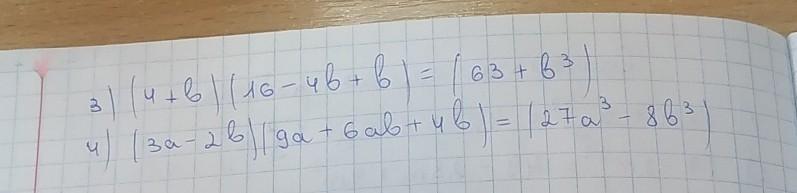 3) (4+b)(16-4b+b)=(63+b³)
4) (3a-2b)(9a+6ab+4b)=(27a³-8b³)